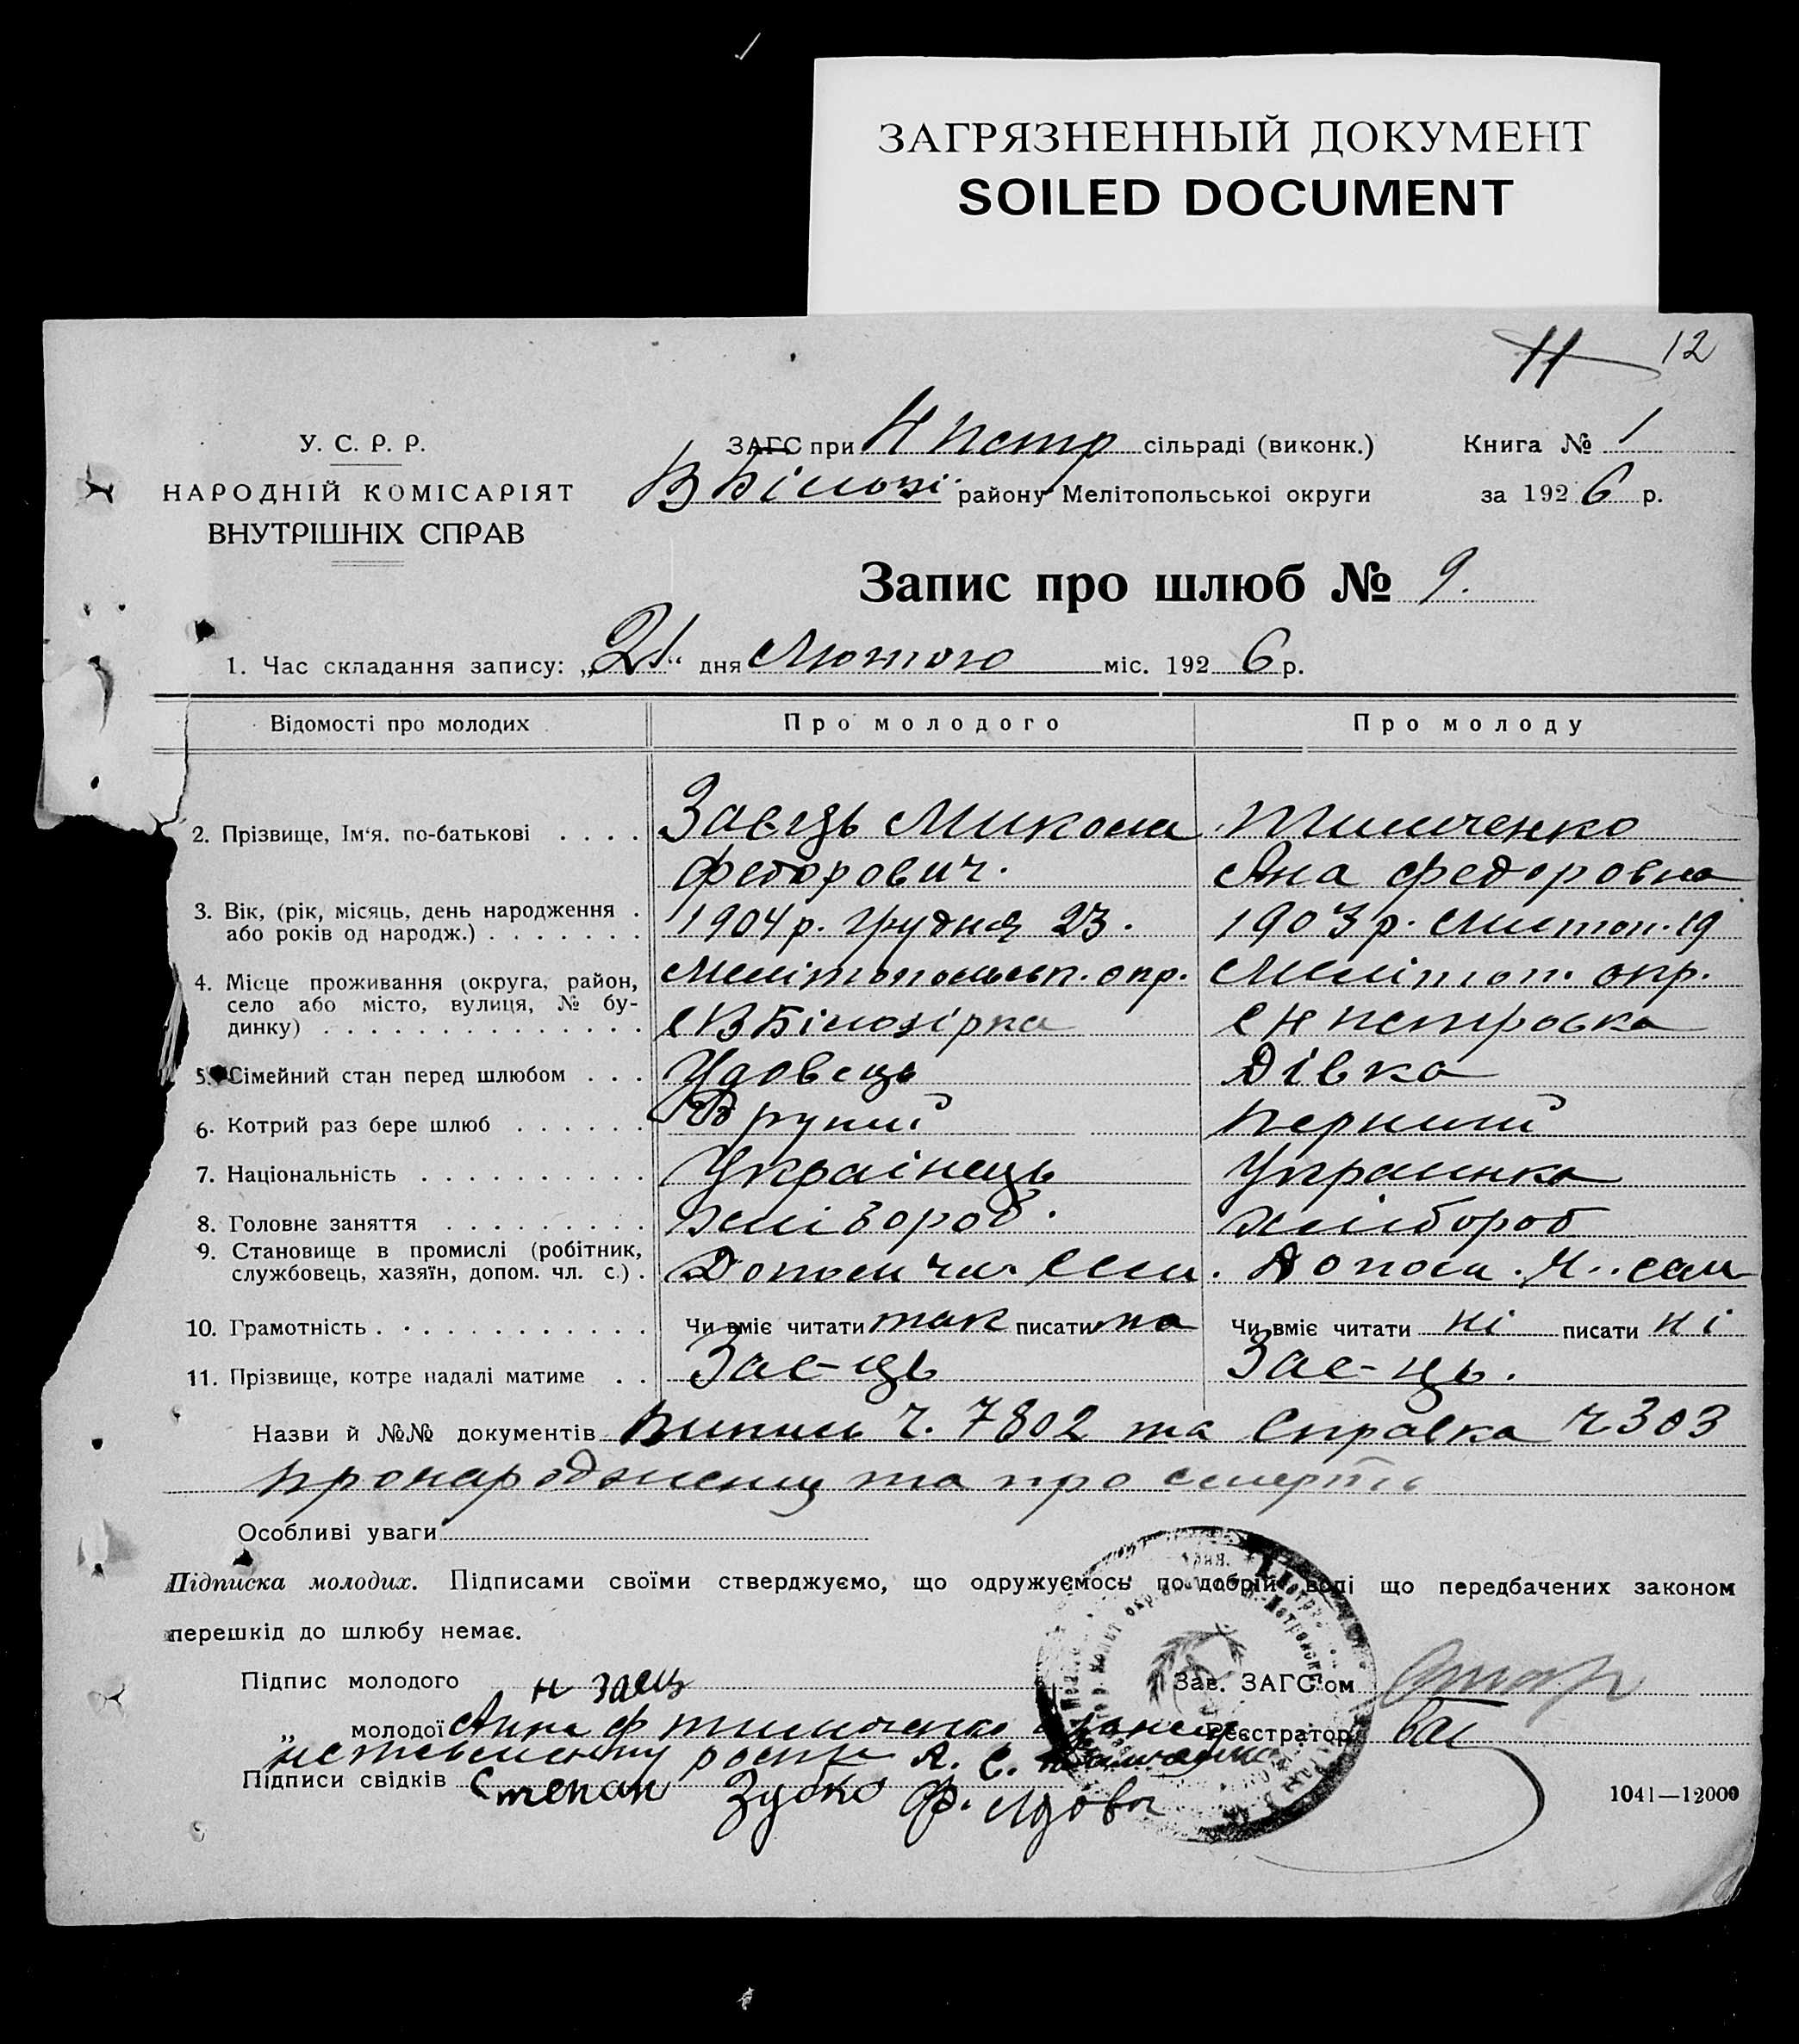 ЗАГРЯЗНЕННЫЙ ДОКУМЕНТ
SOILED DOCUMENT
11 12
У. С. Р. Р.
НАРОДНІЙ КОМІСАРІЯТ
ВНУТРІШНІХ СПРАВ
ЗАГС при Н Петр сільраді (виконк.) Книга № 1
В Білозі району Мелітопольської округи за 1926 р.
Запис про шлюб № 9.
1. Час складання запису: „21“ дня Лютого міс. 1926 р.
Відомості про молодих Про молодого Про молоду
2. Прізвище, Ім‘я, по-батькові . . . . Заєць Микола Тимченко
Федорович. Ана Федоровна
3. Вік, (рік, місяць, день народження . 1904 р. Грудня 23. 1903 р. Листоп. 19
або років од народж.) . . . . . . .
4. Місце проживання (округа, район, Мелітопольськ. окр. Меліт оп. окр.
село або місто, вулиця, № бу- с В Білозірка с Н Петровка
динку) . . . . . . . . . . . . . .
5. Сімейний стан перед шлюбом . . . Удовець Дівка
6. Котрий раз бере шлюб . . . . . . Другий Перший
7. Національність . . . . . . . . . . Українець Украинка
8. Головне заняття . . . . . . . . . хлібороб. хлибороб
9. Становище в промислі (робітник, Допом чл. сем. Допом. ч. сем
службовець, хазяїн, допом. чл. с.) .
10. Грамотність . . . . . . . . . . . . Чи вміє читати так писати та Чи вміє читати ні писати ні
11. Прізвище, котре надалі матиме . . Зає-ць Зае-ць.
Назви й №№ документів Випись ч. 7802 та Справка ч 303
про народження та про смерть
Особливі уваги
Підписка молодих. Підписами своїми стверджуємо, що одружуємось по добрій волі що передбачених законом
перешкід до шлюбу немає.
Підпис молодого Н Заец Зав. ЗАГС‘ом
„ молодої Анна Ф Тимченко Реєстратор
А. С.
Підписи свідків Степан Зубко Ф.
1041—12000